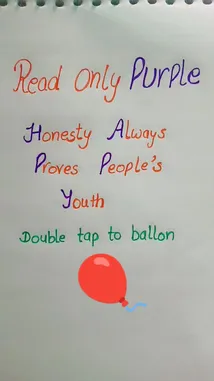 Read Only Purple
Honesty Always
Proves People's
Youth
Double tap to ballon